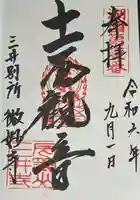 奉拝
令和六年
九月一日
十一面観音
三井別所
微妙寺